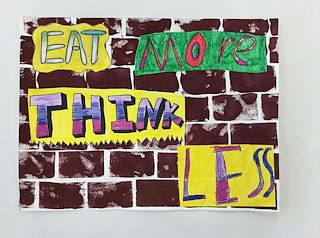 EAT MORe
THINK
LESS